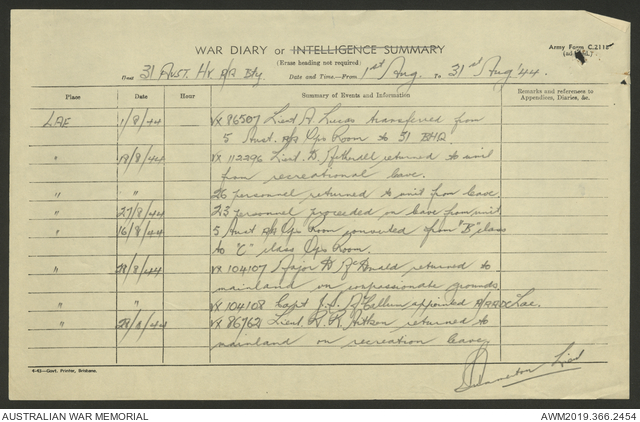 WAR DIARY or INTELLIGENCE SUMMARY
Army Form C.2118
(Erase heading not required)
Unit 31 AUST. HY. A/A Bty. Date and Time.—From 1st Aug. To 31st Aug '44.
Place Date Hour Summary of Events and Information Remarks and references to Appendices, Diaries, &c.
LAE 1/8/44 VX 86507 Lieut A Lucas transferred from
5 Aust. A/A Ops Room to 31 BHQ.
" 18/8/44 VX 112296 Lieut. D. returned to unit
from recreational leave.
" " 26 personnel returned to unit from leave.
" 27/8/44 23 personnel proceeded on leave from unit
" 16/8/44 5 Aust A/A Ops Room converted from "B" class
to "C" class Ops Room.
" 28/8/44 VX 104107 Major D McDonald returned to
mainland on compassionate grounds
" " VX 104108 Capt J. S. McCallum appointed Lae.
" 29/8/44 VX 86762 Lieut. R. R. Aitken returned to
mainland on recreation leave.
Lieut
4-43—Govt. Printer, Brisbane.
AUSTRALIAN WAR MEMORIAL AWM2019.366.2454